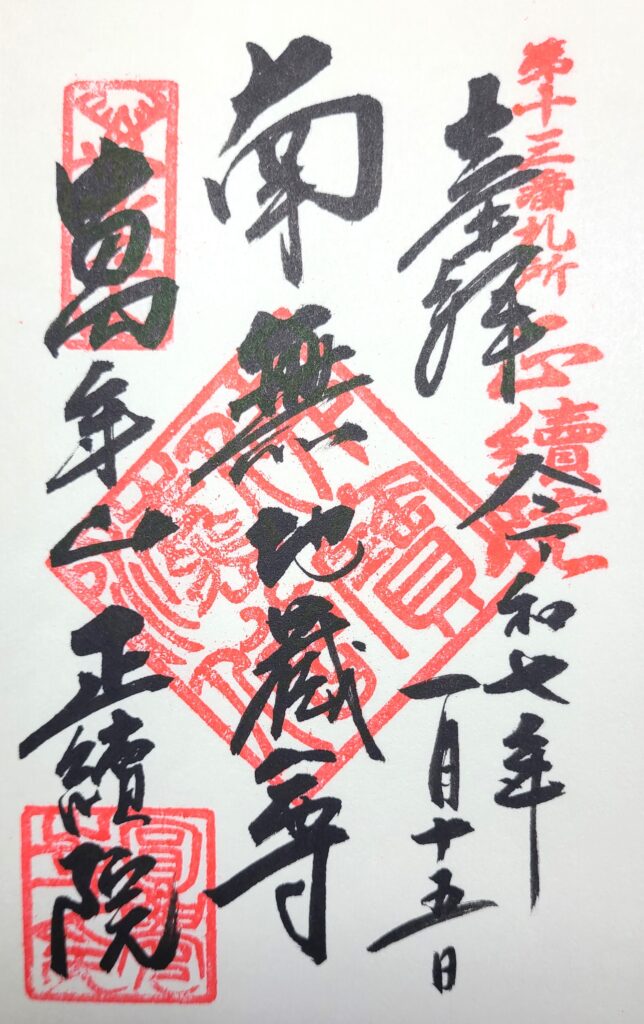 第十三番札所 正續院
奉拜
令和七年
一月十五日
南無地蔵尊
萬年山 正續院